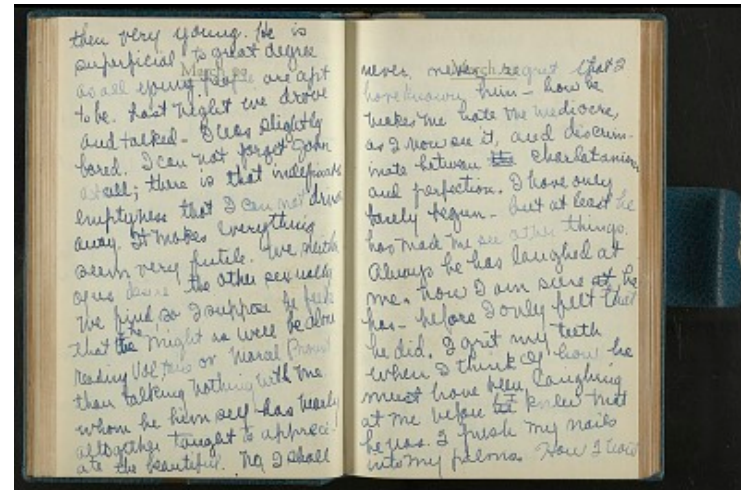 then very young. He is
superficial to great degree
as all young people are apt
to be. Last night we drove
and talked – I was slightly
bored. I can not forget John
at all; there is that indefinable
emptyness that I can not drive
away. It makes everything
seem very futile. We neither
of us desire the other sexually
we find, so I suppose he feels
that he might as well be alone
reading Voltaire or Marcel Proust
than talking nothing with me.
whom he him self has nearly
altogether taught to appreci-
ate the beautiful. No, I shall
never, never regret that I
have known him – how he
makes me hate the mediocre,
as I now see it, and discrim-
inate between charlatanism
and perfection. I have only
barely begun – but at least he
has made me see other things.
Always he has laughed at
me. Now I am sure he
has – before I only felt that
he did. I grit my teeth
when I think of how he
must have been laughing
at me before I knew that
he was. I push my nails
into my palms. How I